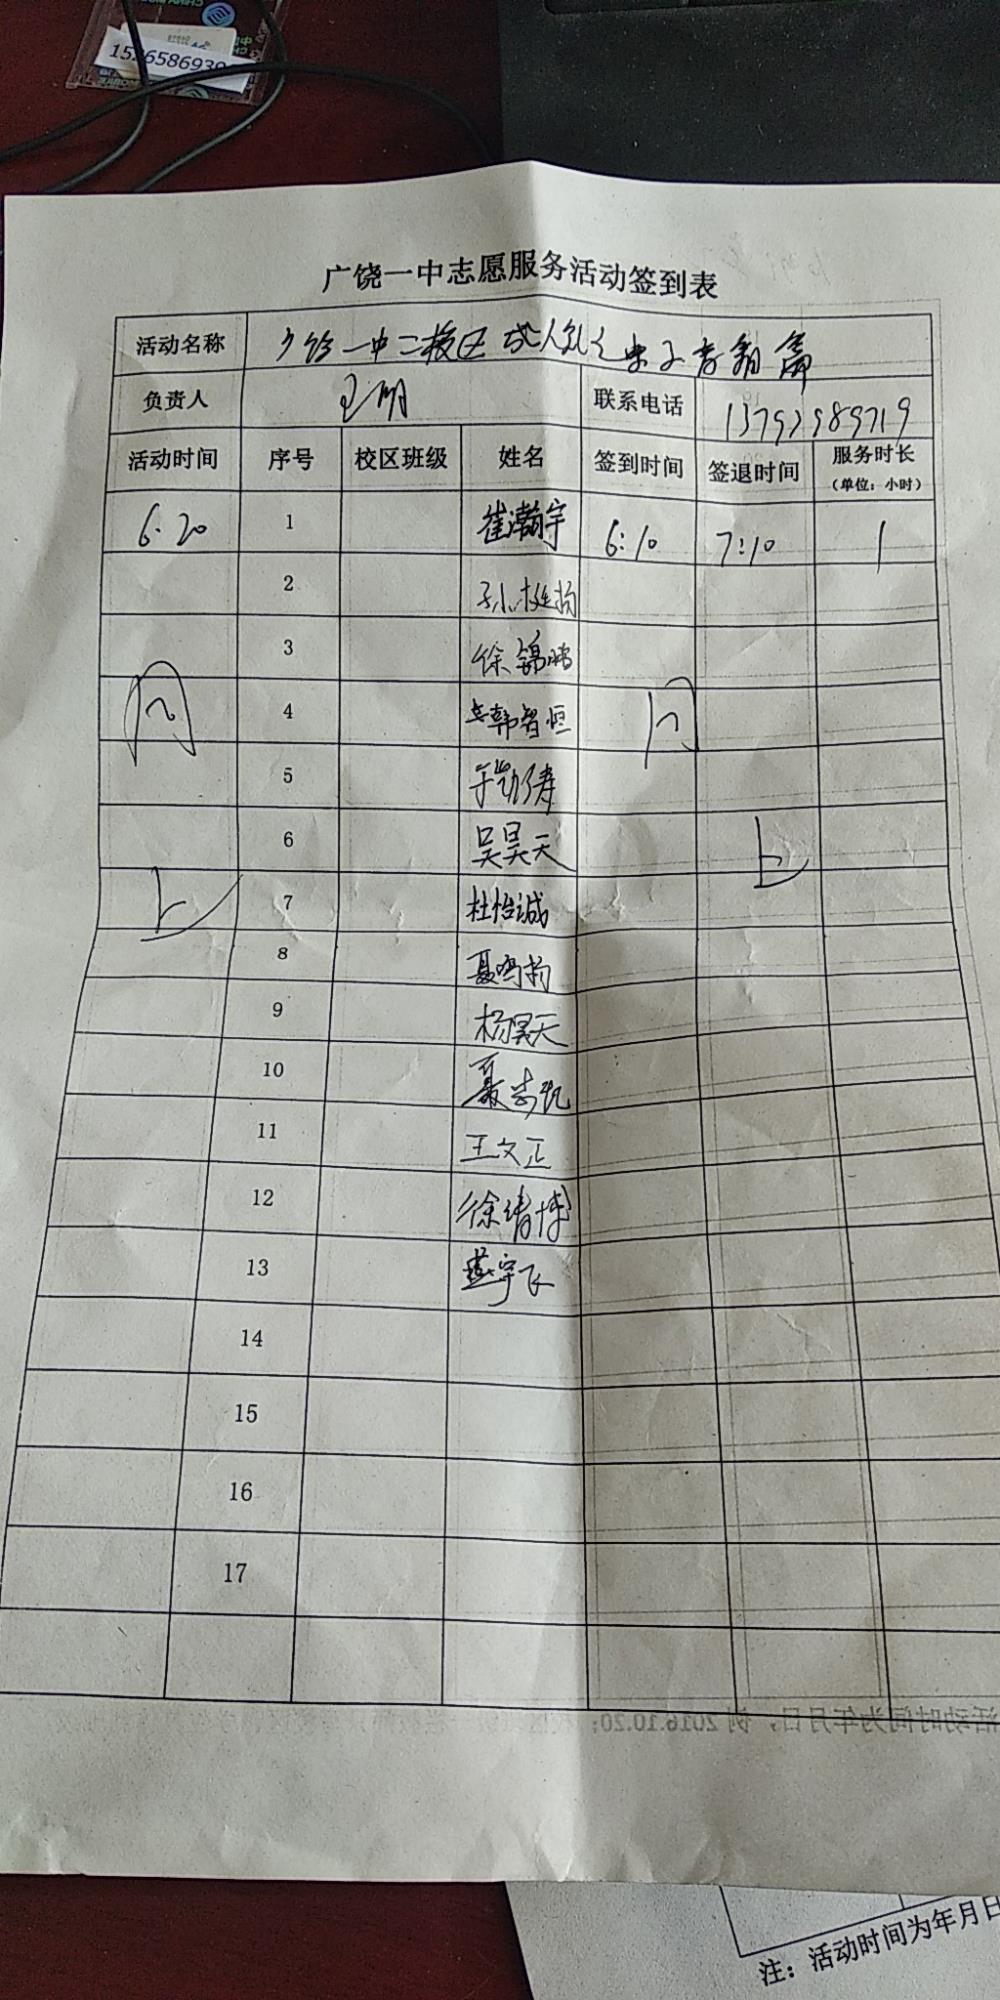 广饶一中志愿服务活动签到表
活动名称 广饶一中二校区成人礼之
负责人 王明 联系电话
活动时间 序号 校区班级 姓名 签到时间 签退时间 服务时长
（单位：小时）
6.20 1 崔瀚宇 6:10 7:10 1
2 孙挺扬
3 徐锦鹏
同 4 韩智恒 同
5
6 吴昊天 上
上 7 杜怡诚
8 聂鸣扬
9 杨昊天
10 聂志凯
11 王文正
12 徐靖博
13 宇飞
14
15
16
17
活动时间为年月日，例 2016.10.20；
注：活动时间为年月日